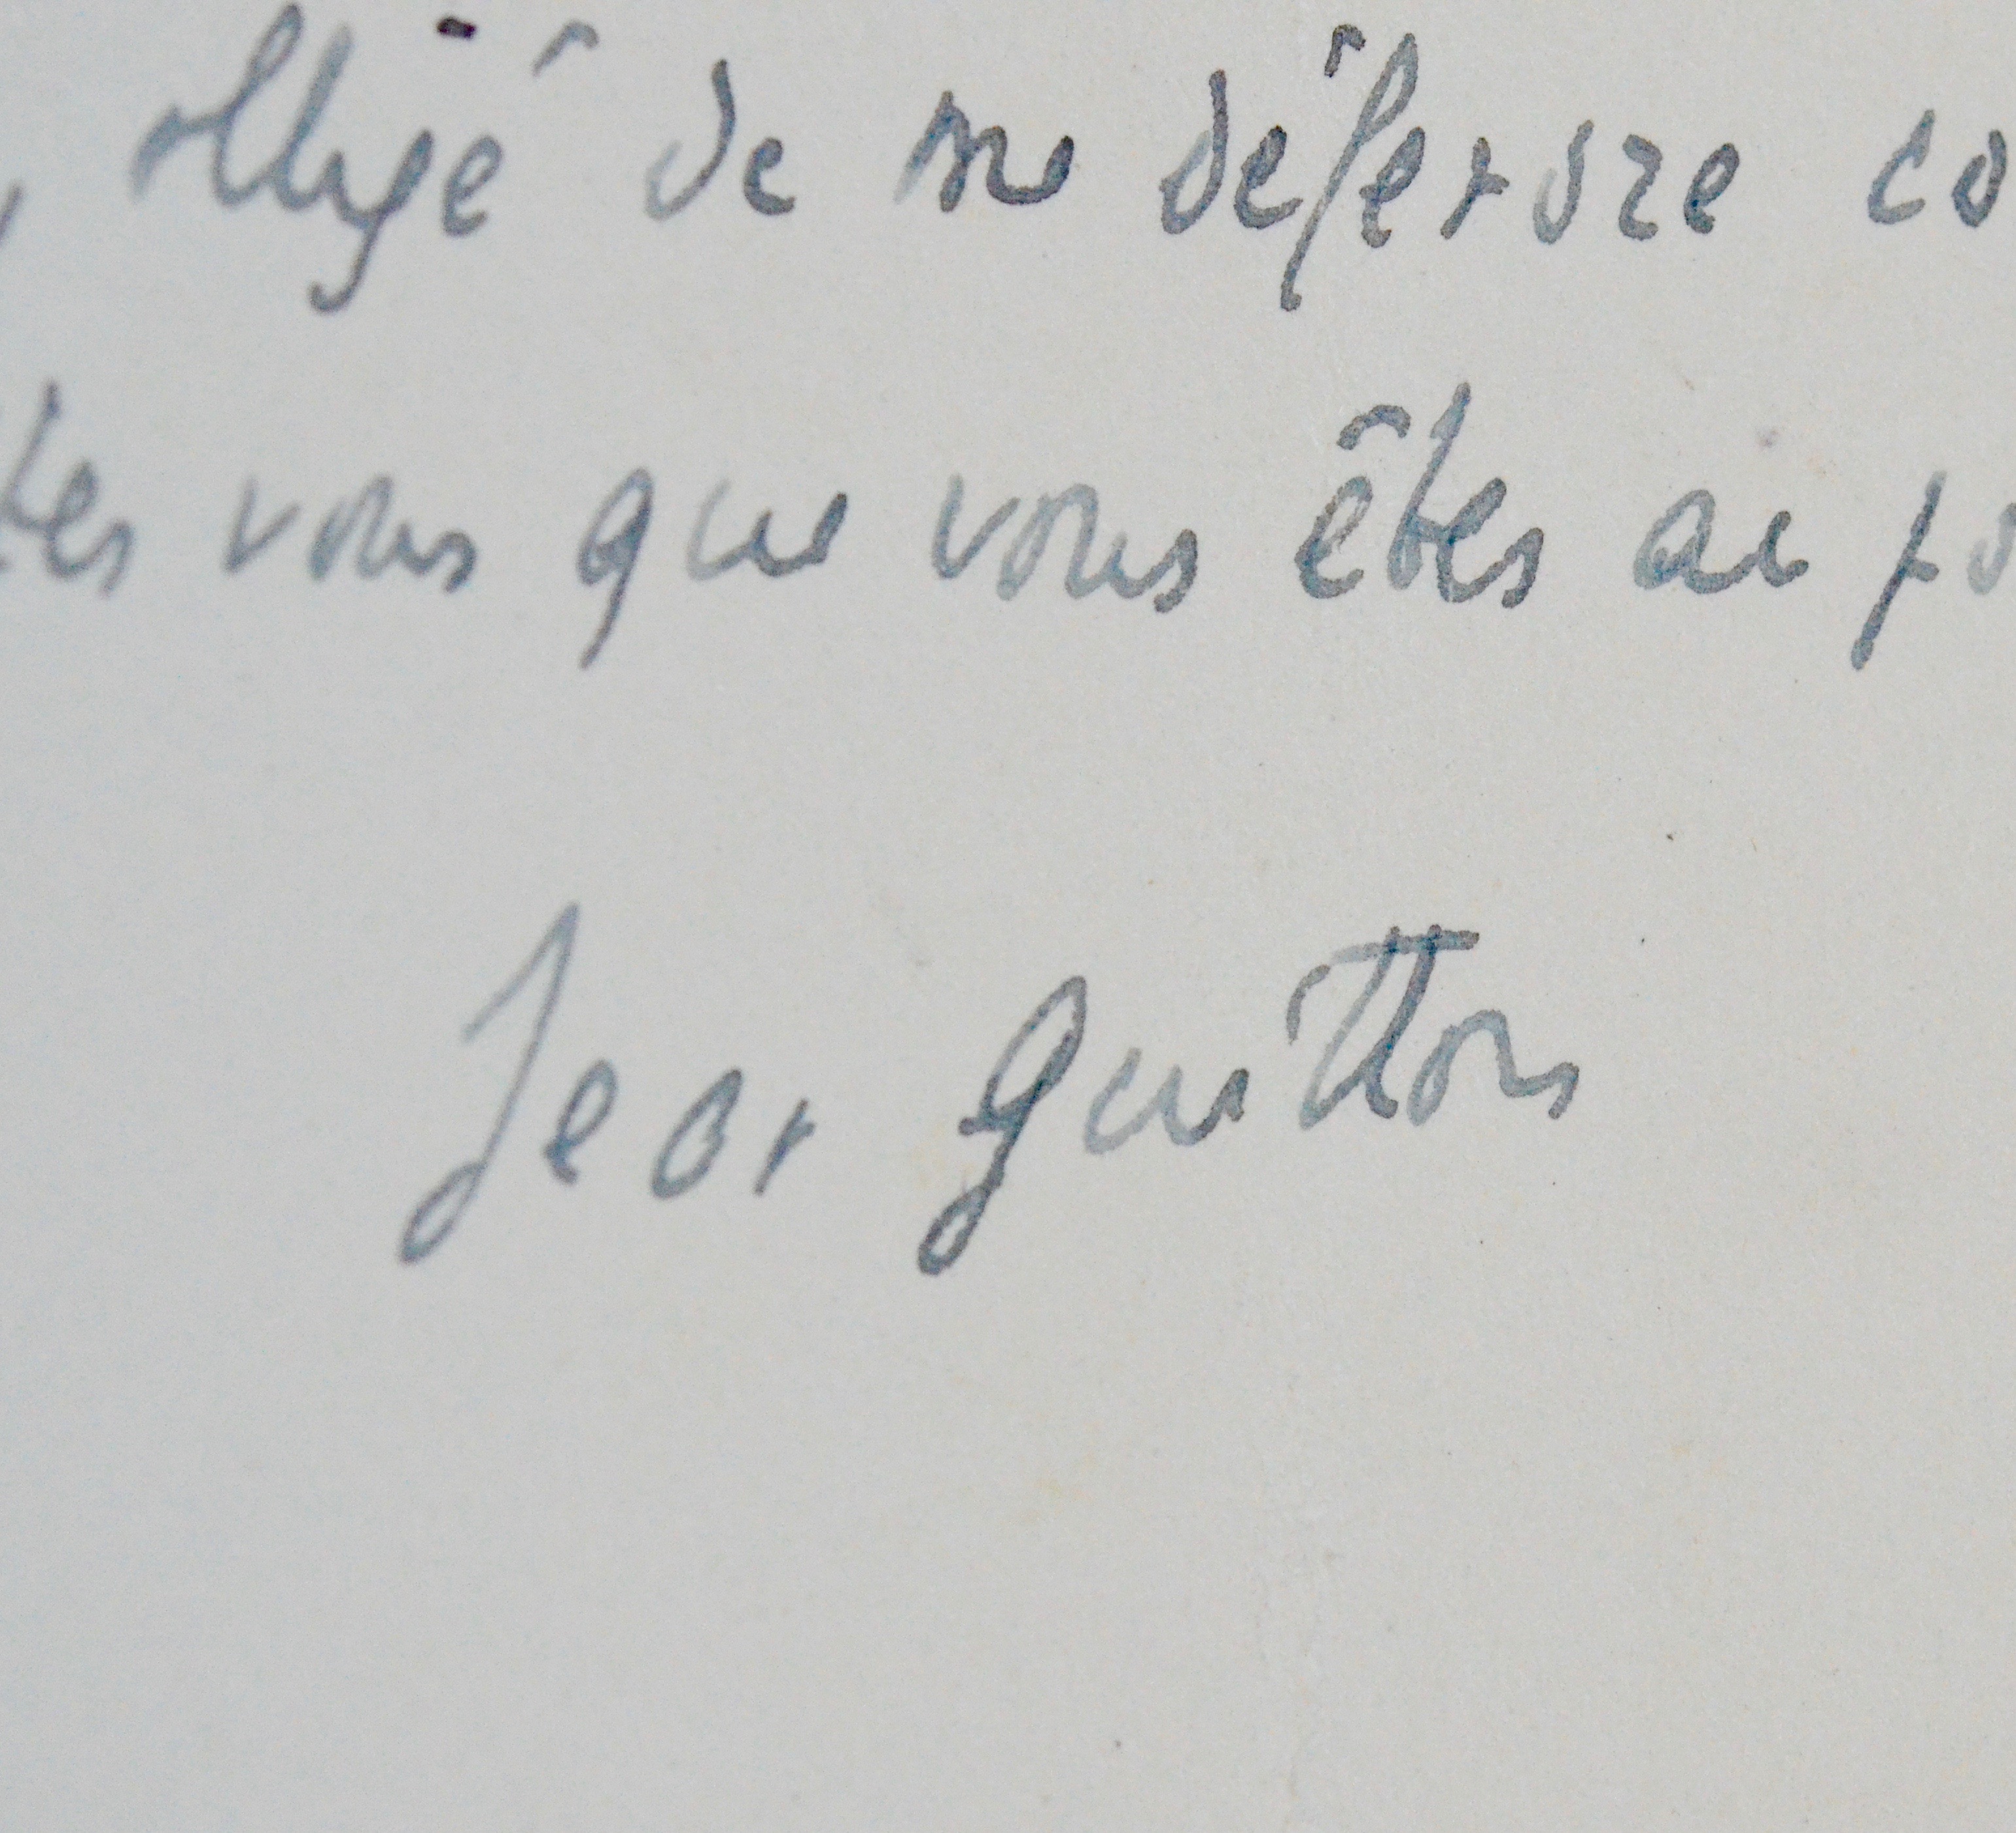 , obligé de me défendre co
tes vous que vous êtes au po
Jean Guitton